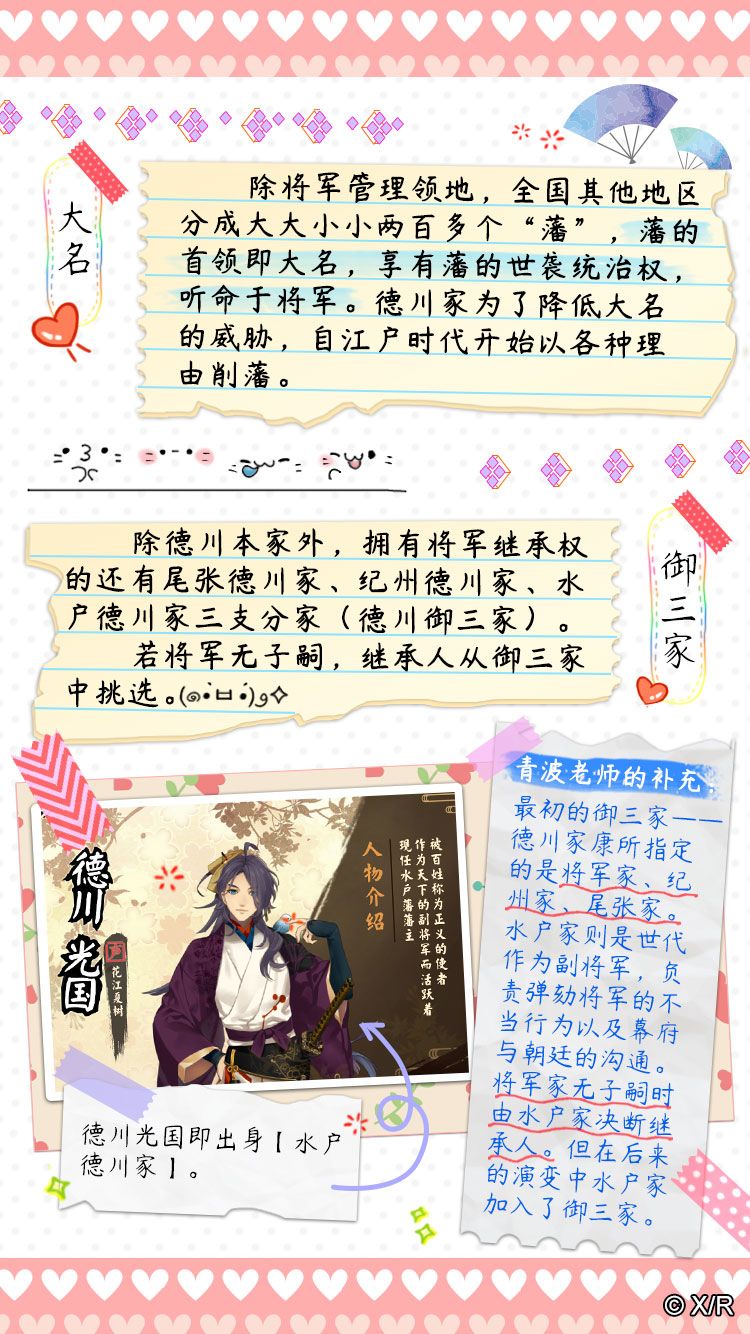 大名
除将军管理领地，全国其他地区
分成大大小小两百多个“藩”，藩的
首领即大名，享有藩的世袭统治权，
听命于将军。德川家为了降低大名
的威胁，自江户时代开始以各种理
由削藩。
御三家
除德川本家外，拥有将军继承权
的还有尾张德川家、纪州德川家、水
户德川家三支分家（德川御三家）。
若将军无子嗣，继承人从御三家
中挑选。(๑•̀ㅂ•́)و✧
德川 光国
声
花江夏树
人物介绍
被百姓称为正义的使者
作为天下的副将军而活跃着
现任水户藩藩主
德川光国即出身【水户
德川家】。
青波老师的补充：
最初的御三家——
德川家康所指定
的是将军家、纪
州家、尾张家。
水户家则是世代
作为副将军，负
责弹劾将军的不
当行为以及幕府
与朝廷的沟通。
将军家无子嗣时
由水户家决断继
承人。但在后来
的演变中水户家
加入了御三家。
© X/R